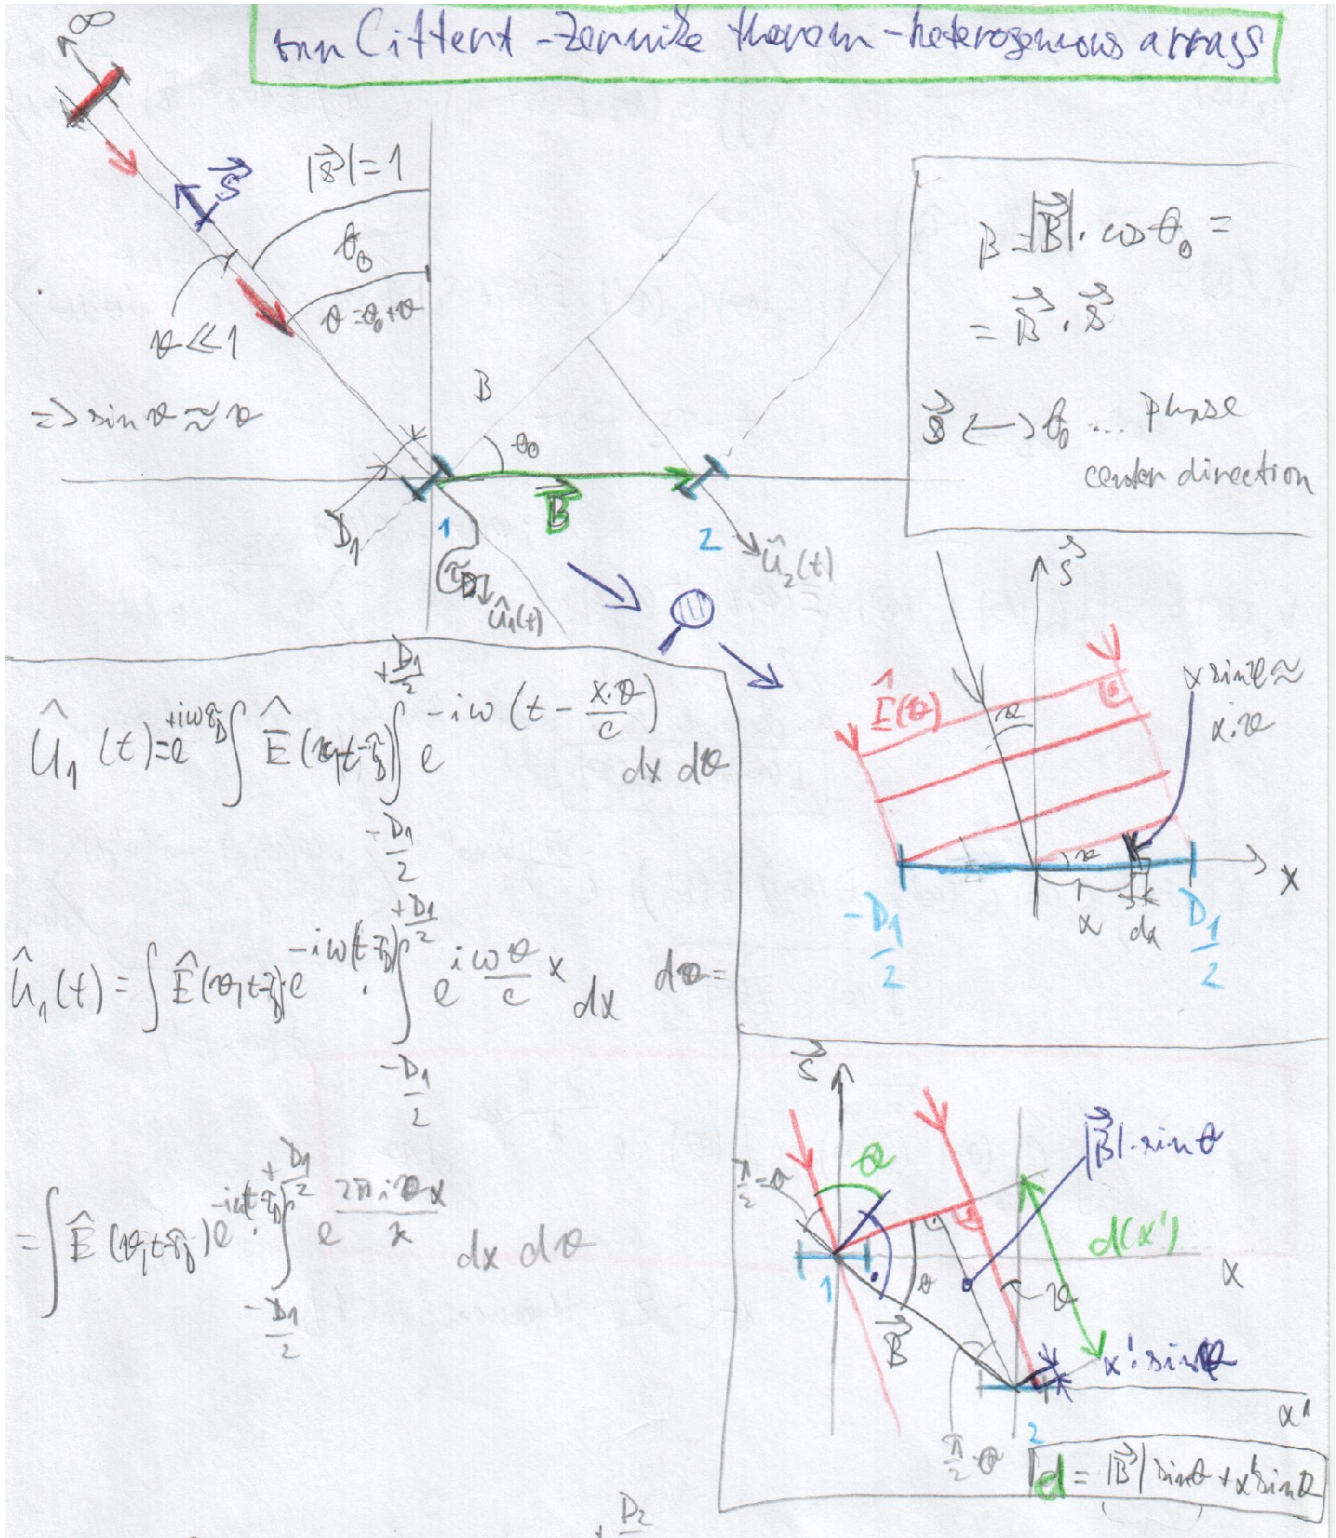 van Cittert - Zernike theorem - heterogenous arrays
∞
|s⃗| = 1
s⃗
θ₀
θ = θ₀ + ϑ
ϑ ≪ 1
=> sin ϑ ≈ ϑ
B
θ₀
B⃗
D₁
1
2
τ_D
û₁(t)
û₂(t)
B = |B⃗| · cos θ₀ =
= B⃗ · s⃗
s⃗ <-> θ₀ ... phase
center direction
s⃗
Ê(ϑ)
ϑ
x sin ϑ ≈
x · ϑ
ϑ
x
dx
x
-D₁/2
D₁/2
û₁(t) = e^{+iωτ_D} ∫ Ê(ϑ, t-τ_D) ∫_{-D₁/2}^{+D₁/2} e^{-iω(t - x·ϑ/c)} dx dϑ
û₁(t) = ∫ Ê(ϑ, t-τ_D) · e^{-iω(t-τ_D)} · ∫_{-D₁/2}^{+D₁/2} e^{i ωϑ/c x} dx dϑ =
= ∫ Ê(ϑ, t-τ_D) e^{-iω(t-τ_D)} · ∫_{-D₁/2}^{+D₁/2} e^{2πiϑx/λ} dx dϑ
s⃗
π/2 - θ
θ
|B⃗| · sin θ
d(x')
1
θ
ϑ
x
B⃗
x' · sin ϑ
x'
2
π/2 - θ
d = |B⃗| sin θ + x' sin ϑ
+ D₂